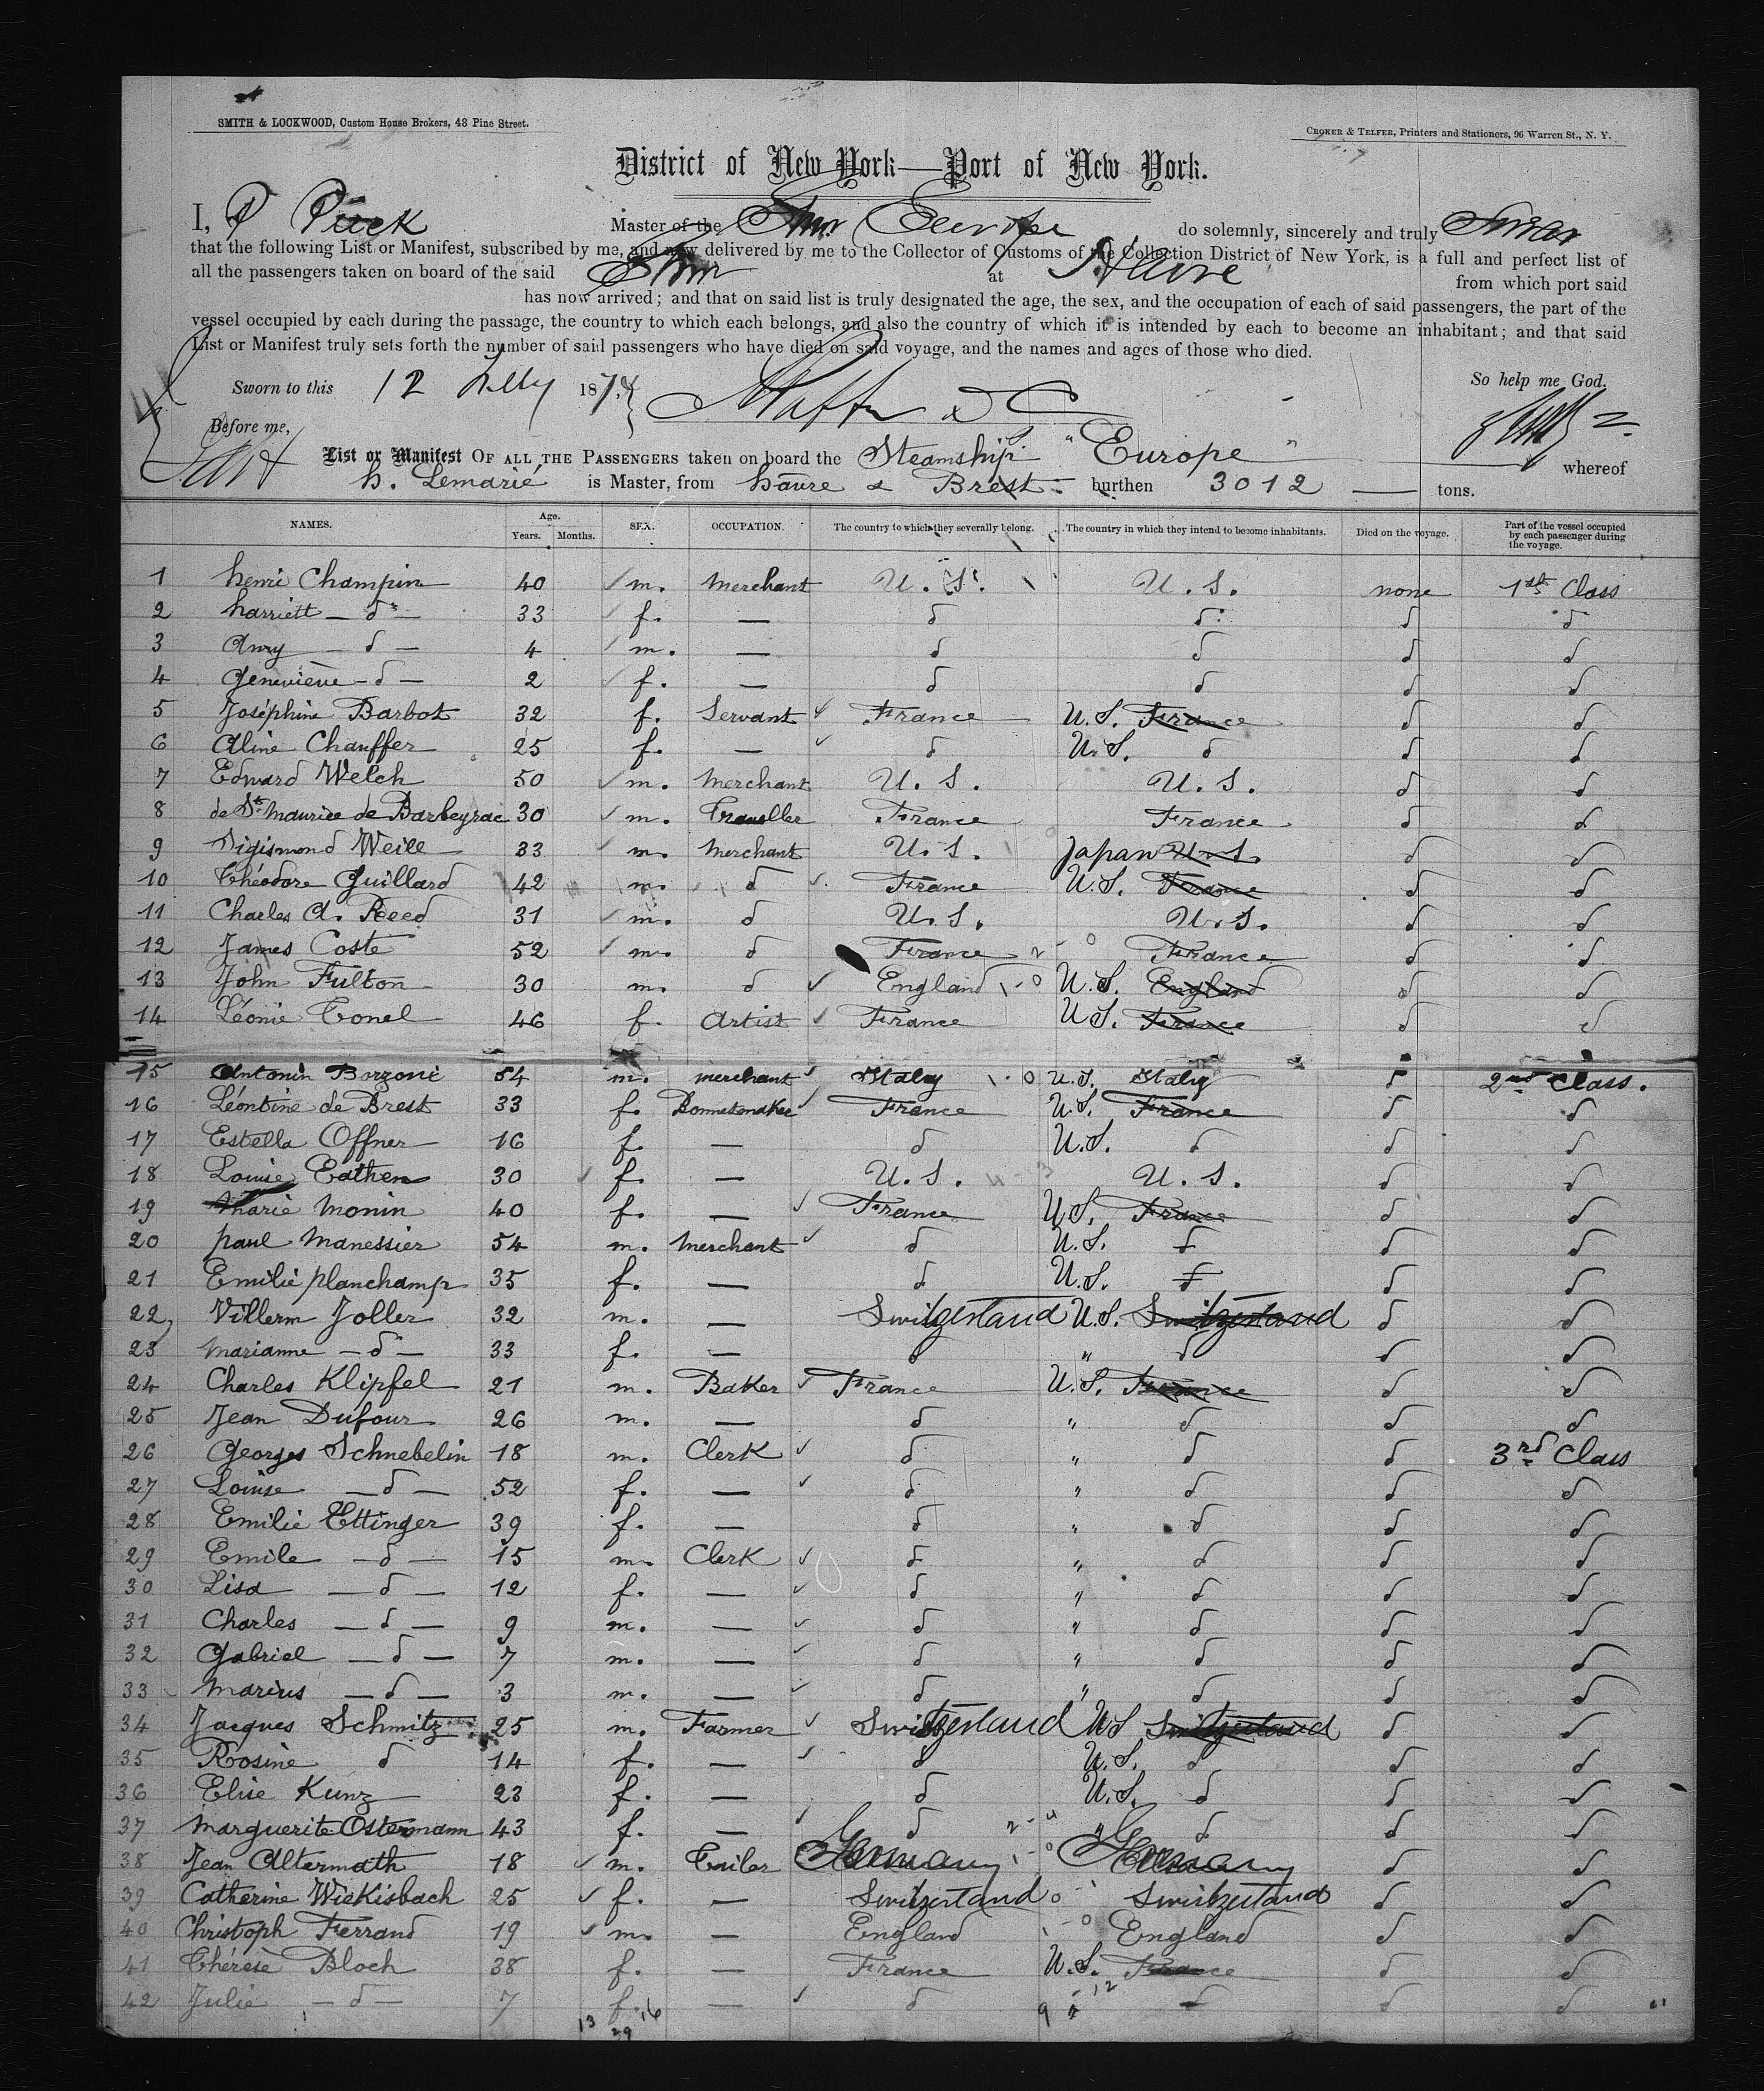 SMITH & LOCKWOOD, Custom House Brokers, 48 Pine Street.
CROKER & TELFER, Printers and Stationers, 96 Warren St., N. Y.
District of New York—Port of New York.
I, Master of the Stmr Europe do solemnly, sincerely and truly Swear
that the following List or Manifest, subscribed by me, and now delivered by me to the Collector of Customs of the Collection District of New York, is a full and perfect list of
all the passengers taken on board of the said Stmr at Havre from which port said
has now arrived; and that on said list is truly designated the age, the sex, and the occupation of each of said passengers, the part of the
vessel occupied by each during the passage, the country to which each belongs, and also the country of which it is intended by each to become an inhabitant; and that said
List or Manifest truly sets forth the number of said passengers who have died on said voyage, and the names and ages of those who died.
Sworn to this 12 187 So help me God.
Before me,
List or Manifest OF ALL THE PASSENGERS taken on board the Steamship "Europe" whereof
h. Lemarié is Master, from havre & Brest burthen 3012 tons.
NAMES. Age. Years. Months. SEX. OCCUPATION. The country to which they severally belong. The country in which they intend to become inhabitants. Died on the voyage. Part of the vessel occupied by each passenger during the voyage.
1 henri Champin 40 m. merchant U. S. U. S. none 1st Class
2 harriett — d° — 33 f. — d d d d
3 — d — 4 m. — d d d d
4 Geneviève — d — 2 f. — d d d d
5 Joséphine Barbot 32 f. Servant France U.S. France d d
6 Aline Chauffer 25 f. — d U.S. d d d
7 Edward Welch 50 m. merchant U. S. U. S. d d
8 de St. Maurice de Barbeyrac 30 m. Traveller France France d d
9 Sigismond Weill 33 m. merchant U. S. Japan U.S. d d
10 Théodore Guillard 42 m. d France U.S. France d d
11 Charles A. Reed 31 m. d U. S. U. S. d d
12 James Coste 52 m. d France France d d
13 John Fulton 30 m. d England U.S. England d d
14 Léonie Tonel 46 f. Artist France U.S. France d d
15 Antonin Borzoni 54 m. merchant Italy U.S. Italy d 2nd Class.
16 Léontine de Brest 33 f. France U.S. France d d
17 Estella Offner 16 f. — d U.S. d d d
18 Louise Eathen 30 f. — U. S. U. S. d d
19 Marie Monin 40 f. — France U.S. France d d
20 paul Manessier 54 m. merchant d U.S. d d d
21 Emilie planchamp 35 f. — d U.S. d d d
22 Villerm Joller 32 m. — Switzerland U.S. Switzerland d d
23 Marianne — d — 33 f. — d " d d d
24 Charles Klipfel 21 m. Baker France U.S. France d d
25 Jean Dufour 26 m. — d " d d d
26 Georges Schnebelin 18 m. Clerk d " d d 3rd Class
27 Louise — d — 52 f. — d " d d d
28 Emilie Ettinger 39 f. — d " d d d
29 Emile — d — 15 m. Clerk d " d d d
30 Lisa — d — 12 f. — d " d d d
31 Charles — d — 9 m. — d " d d d
32 Gabriel — d — 7 m. — d " d d d
33 Marius — d — 3 m. — d " d d d
34 Jacques Schmitz 25 m. Farmer Switzerland US Switzerland d d
35 Rosine d 14 f. — d U.S. d d d
36 Elise Kunz 23 f. — d U.S. d d d
37 Marguerite Ostermann 43 f. — d " d d d
38 Jean Altermath 18 m. Tailor Germany Germany d d
39 Catherine Wiekisbach 25 f. — Switzerland Switzerland d d
40 Christoph Ferrand 19 m. — England England d d
41 Thérèse Bloch 38 f. — France U.S. France d d
42 Julie — d — 7 f. — d " d d d
13 16
29
9 12